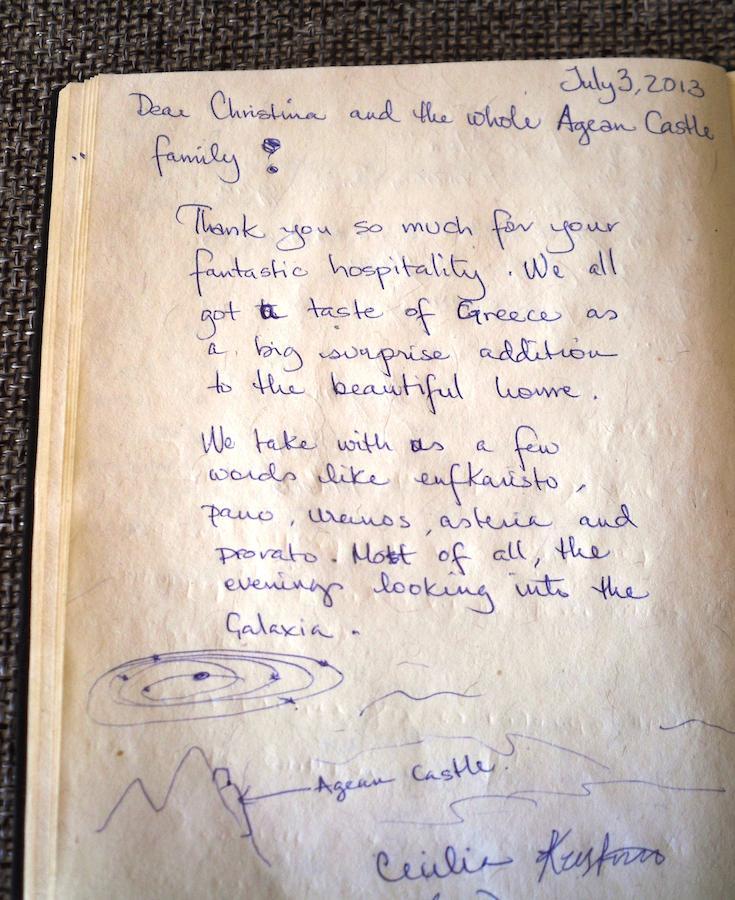 July 3, 2013
Dear Christina and the whole Agean Castle
family !
Thank you so much for your
fantastic hospitality. We all
got a taste of Greece as
a big surprise addition
to the beautiful home.
We take with us a few
words like eufkaristo,
pano, uranos, asteria and
provato. Most of all, the
evenings looking into the
Galaxia.
Agean Castle.
Cecilia